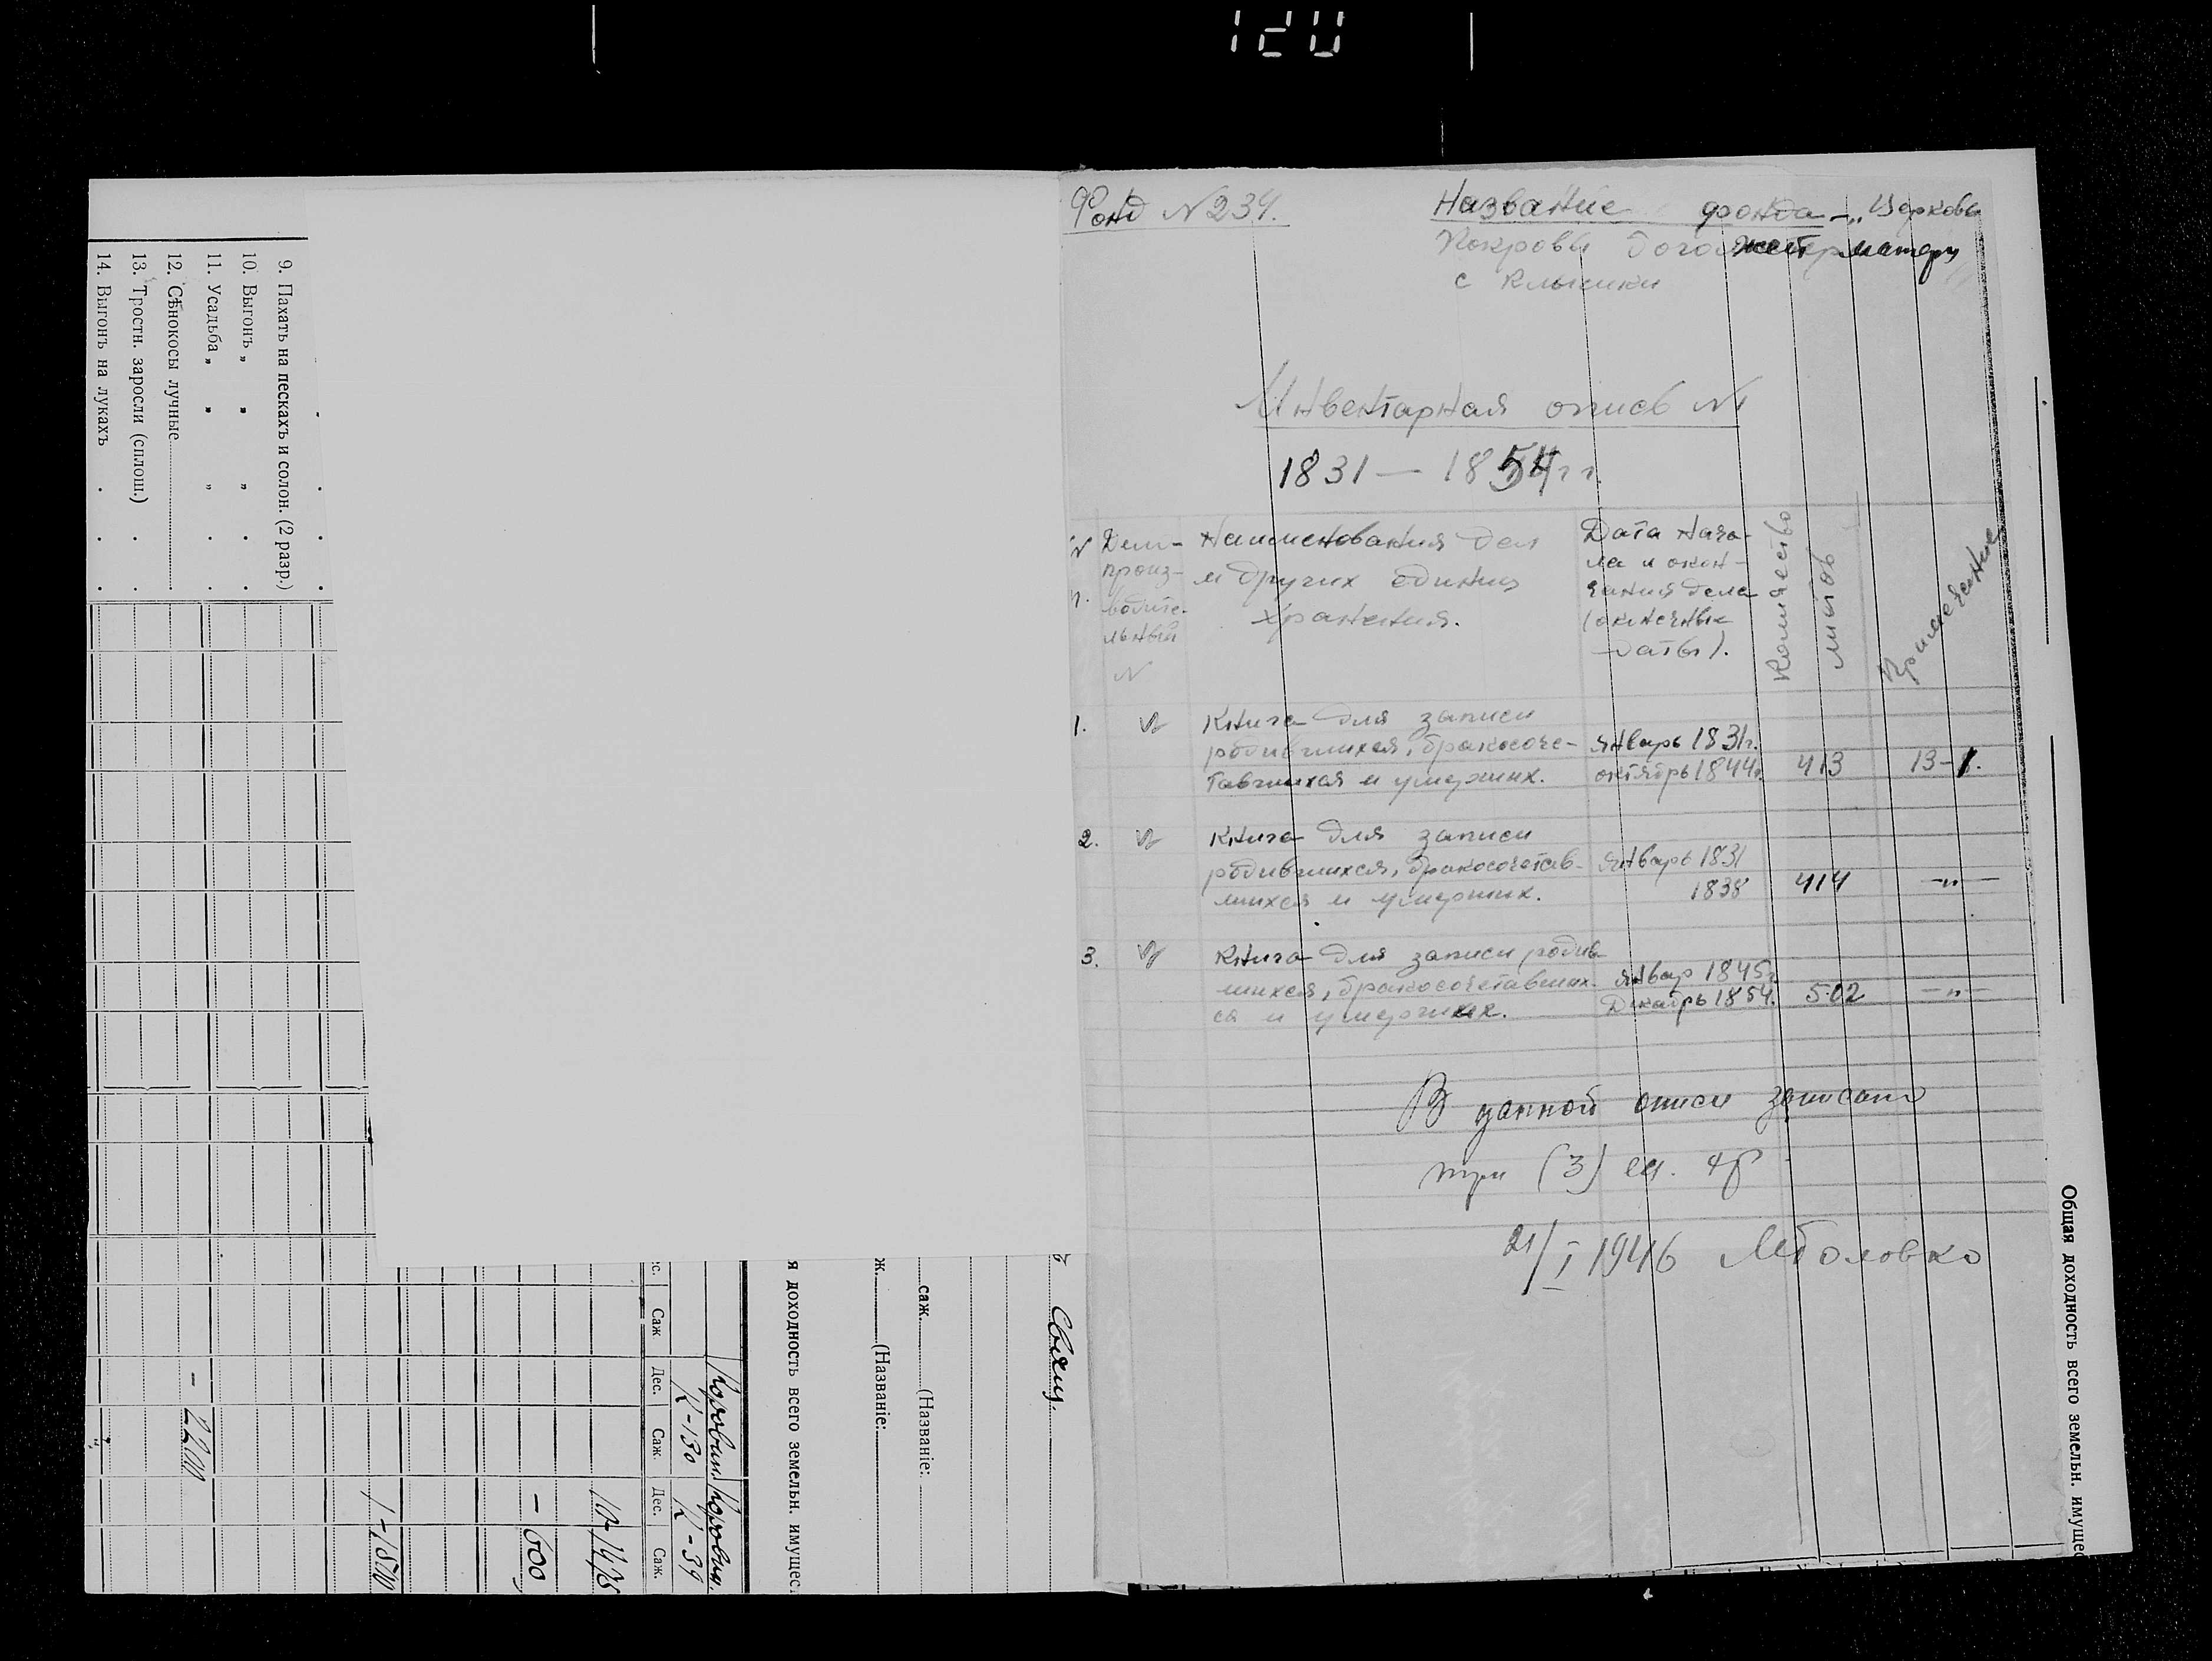 120
Фонд №234.
Название фонда - „Церковь
Покровы Богоматери
с
Инвентарная опись №1
1831 — 1854 гг.
№
п.
Дело-
произ-
водите-
льный
№
Наименования дел
и других единиц
хранения.
Дата нача-
ла и окон-
чания дела
(оконечные
даты).
Количество
листов
Примечание
1.
Книга для записи
родившихся, бракосоче-
тавшихся и умерших.
январь 1831г.
октябрь 1844г.
413
13-1.
2.
Книга для записи
родившихся, бракосочетав-
шихся и умерших.
январь 1831
1838
414
—"—
3.
Книга для записи родив-
шихся, бракосочетавших-
ся и умерших.
январ 1845г
Декабрь 1854.
502
—"—
В данной описи записано
три (3) ед. хр
21/I 1946 Головко
9. Пахать на пескахъ и солон. (2 разр.)
10. Выгонъ „ „ „
11. Усадьба „ „ „
12. Сѣнокосы лучные
13. Тростн. заросли (сплош.)
14. Выгонъ на лукахъ
Свящ.
саж. (Названіе:
ж. (Названіе:
я доходность всего земельн. имущес.
К-130
К-39
с. Саж Дес. Саж. Дес. Саж.
10-1475
- 600
1-1500
- 2200
Общая доходность всего земельн. имущес